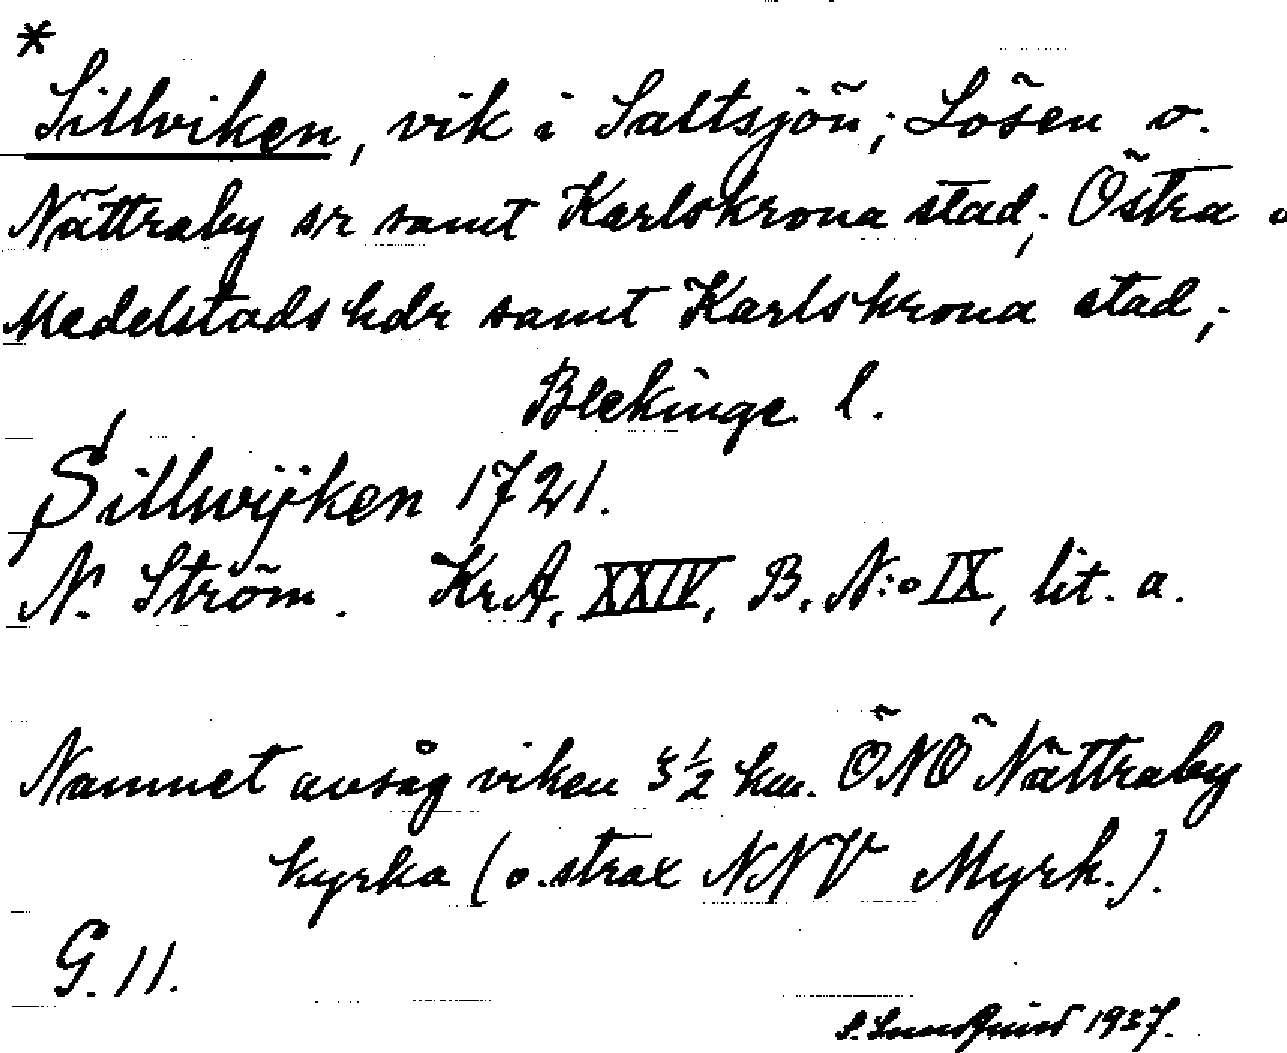 *
Sillviken, vik i Saltsjön; Lösen o.
Nättraby sr samt Karlskrona stad; Östra o
Medelstads hdr samt Karlskrona stad;
Blekinge l.
Sillwijken 1721.
N. Ström. KrA, XXIV, B. N:o IX, lit. a.
Namnet avsåg viken 5½ km. ÖNÖ Nättraby
kyrka (o. strax NNV Myrh.).
G. 11.
1937.